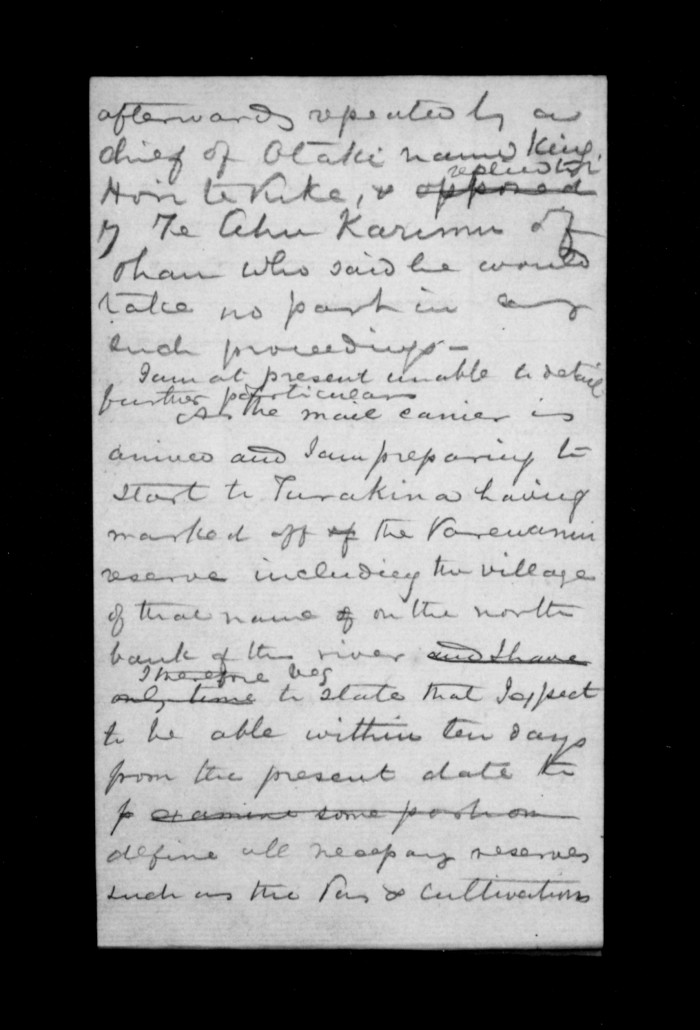 afterwards repeated by a
chief of Otaki named King
replied to
Hori te Puke, & opposed
by Te Ahu Karimu of
Ohau who said he would
take no part in any
such proceedings—
I am at present unable to detail
further particulars
As the mail carrier is
arrived and I am preparing to
start to Turakina having
marked off of the Parewanui
reserve including the village
of that name & on the north
bank of the river and I have
I therefore beg
only time to state that I expect
to be able within ten days
from the present date to
p examine some portion
define all necessary reserves
such as the Pas & cultivations